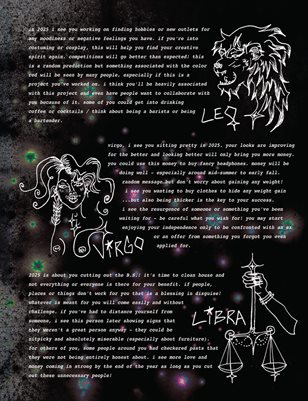 in 2025 i see you working on finding hobbies or new outlets for
any moodiness or negative feelings you have. if you're into
costuming or cosplay, this will help you find your creative
spirit again. competitions will go better than expected! this
is a random prediction but something associated with the color
red will be seen by many people, especially if this is a
project you've worked on. i think you'll be heavily associated
with this project and even have people want to collaborate with
you because of it. some of you could get into drinking
coffee or cocktails / think about being a barista or being
a bartender.
LEO
virgo, i see you sitting pretty in 2025. your looks are improving
for the better and looking better will only bring you more money.
you could use this money to buy fancy headphones. money will be
doing well - especially around mid-summer to early fall.
random message but don't worry about gaining any weight!
i see you wanting to buy clothes to hide any weight gain
...but also being thicker is the key to your success.
i see the resurgence of someone or something you've been
waiting for - be careful what you wish for! you may start
enjoying your independence only to be confronted with an ex
or an offer from something you forgot you even
applied for.
VIRGO
2025 is about you cutting out the B.S.! it's time to clean house and
not everything or everyone is there for your benefit. if people,
places or things don't work for you that is a blessing in disguise!
whatever is meant for you will come easily and without
challenge. if you've had to distance yourself from
someone, i see this person later showing signs that
they weren't a great person anyway - they could be
nitpicky and absolutely miserable (especially about furniture).
for others of you, some people around you had checkered pasts that
they were not being entirely honest about. i see more love and
money coming in strong by the end of the year as long as you cut
out these unnecessary people!
L*BRA